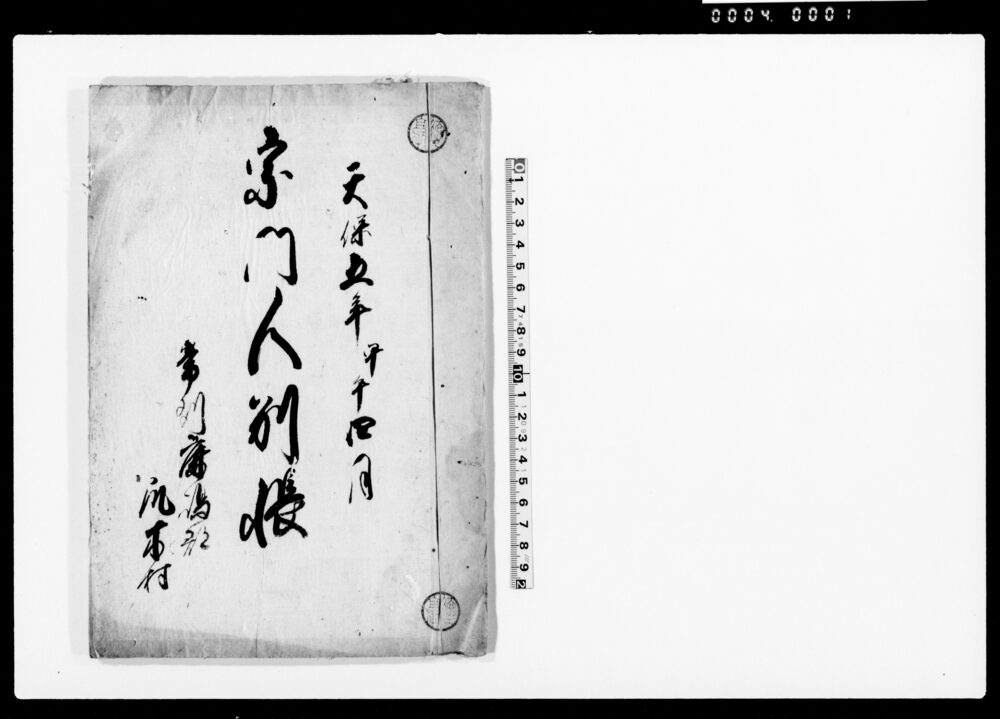 0004. 0001
天保五年甲午四月
宗門人別帳
常州鹿嶋郡
爪木村
0 1 2 3 4 5 6 7 8 9 10 1 2 3 4 5 6 7 8 9 2